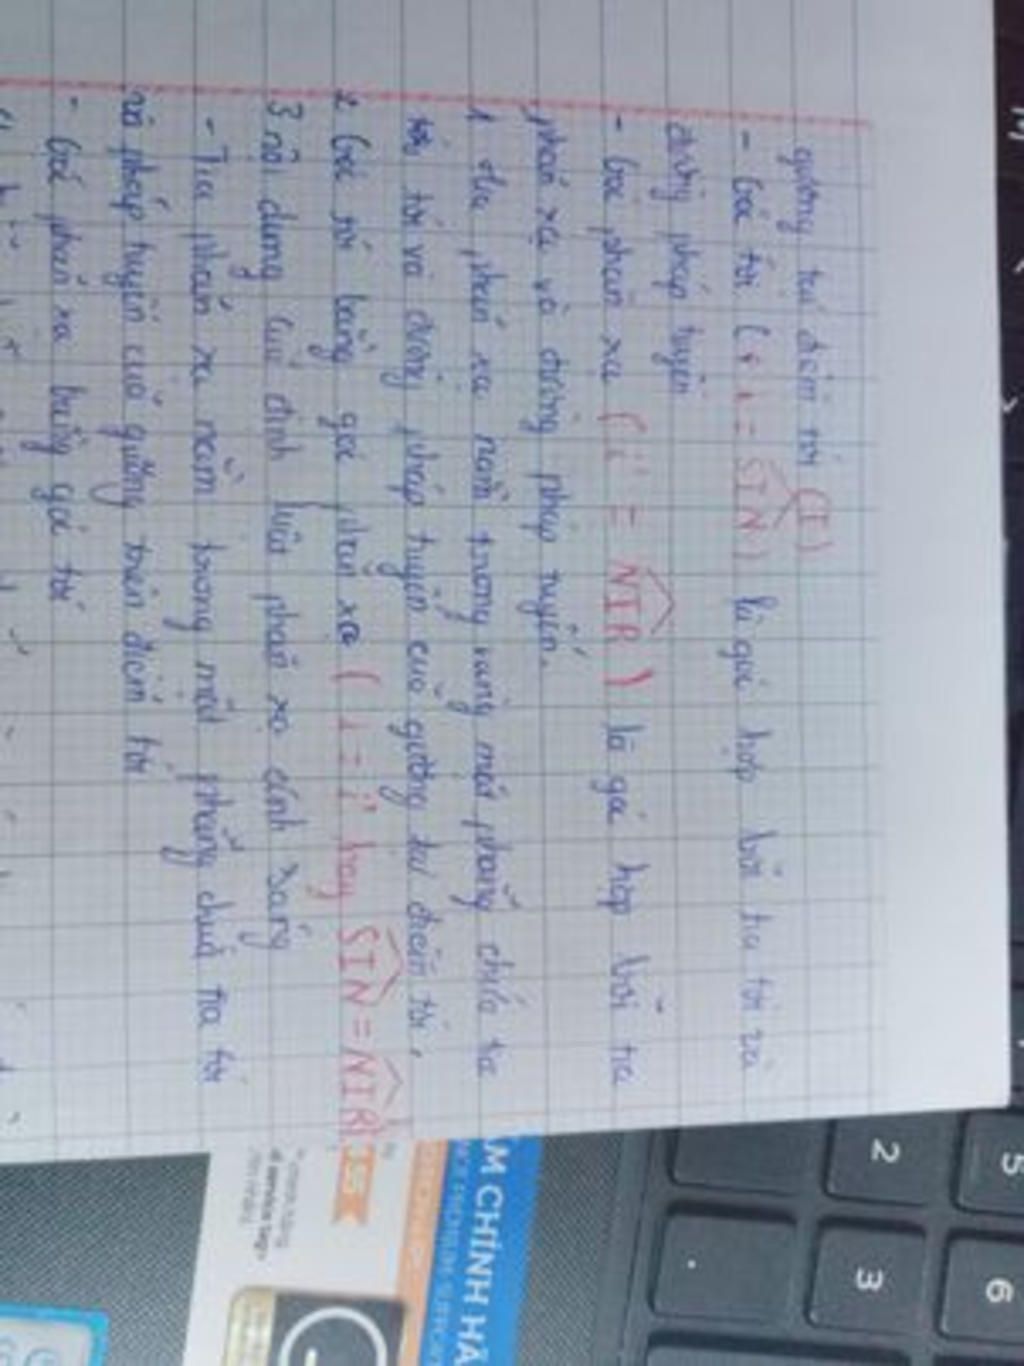 gương tại điểm tới (I)
- Góc tới ( i = SIN ) là góc hợp bởi tia tới và
đường pháp tuyến
- Góc phản xạ ( i' = NIR ) là góc hợp bởi tia
phản xạ và đường pháp tuyến.
1 tia phản xạ nằm trong cùng mặt phẳng chứa tia
tới và đường pháp tuyến của gương tại điểm tới.
2 Góc tới bằng góc phản xạ ( i = i' hay SIN = NIR )
3 nội dung của định luật phản xạ ánh sáng
- Tia phản xạ nằm trong mặt phẳng chứa tia tới
và pháp tuyến của gương trên điểm tới
- Góc phản xạ bằng góc tới
M CHÍNH HÃ
service tag
5
2
6
3
.